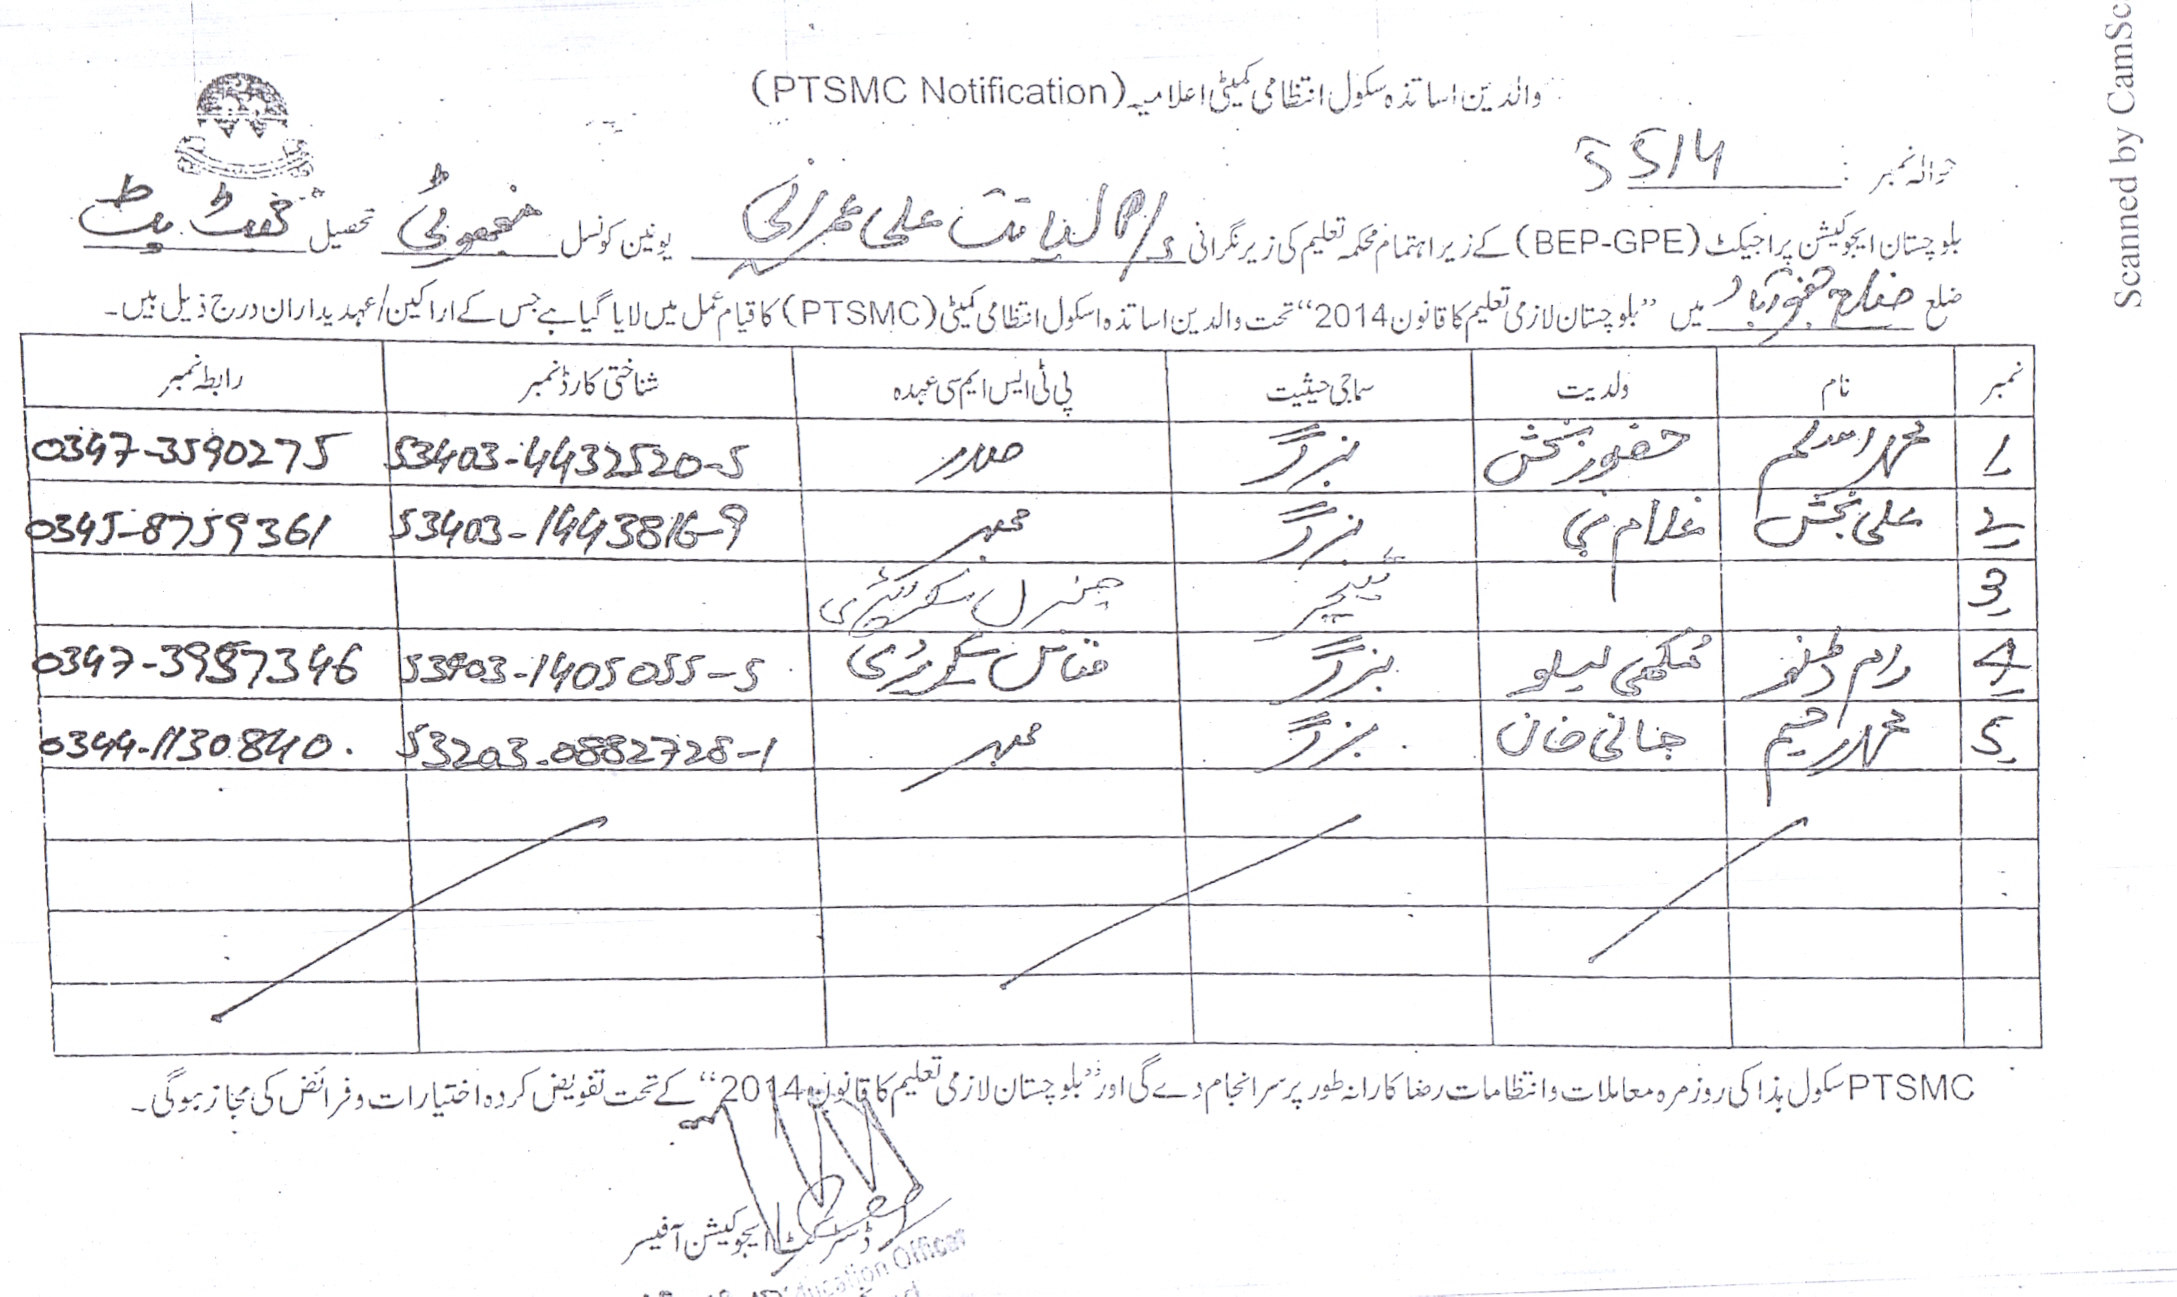 والدین اساتذہ سکول انتظامی کمیٹی اعلامیہ (PTSMC Notification)
حوالہ نمبر : 5514
بلوچستان ایجوکیشن پراجیکٹ (BEP-GPE) کے زیر اہتمام محکمہ تعلیم کی زیر نگرانی لیاقت علی عمرانی یونین کونسل تحصیل
ضلع میں "بلوچستان لازمی تعلیم کا قانون 2014" تحت والدین اساتذہ اسکول انتظامی کمیٹی (PTSMC) کا قیام عمل میں لایا گیا ہے جس کے اراکین/عہدیداران درج ذیل ہیں۔
نمبر نام ولدیت سماجی حیثیت پی ٹی ایس ایم سی عہدہ شناختی کارڈ نمبر رابطہ نمبر
1 محمد اسلم حضور بخش بزگر صدر 53403-4432520-5 0347-3590275
2 علی بخش غلام نبی بزگر ممبر 53403-1443816-9 0345-8759361
3 ٹیچر جنرل سکریٹری
4 بزگر 53403-1405055-5 0347-3987346
5 محمد رحیم جانی خان بزگر ممبر 53203-0882728-1 0344-1130840
PTSMC سکول ہذا کی روزمرہ معاملات و انتظامات رضاکارانہ طور پر سرانجام دے گی اور "بلوچستان لازمی تعلیم کا قانون 2014" کے تحت تفویض کردہ اختیارات و فرائض کی مجاز ہوگی۔
ڈسٹرکٹ ایجوکیشن آفیسر
Education Officer
Scanned by CamSc